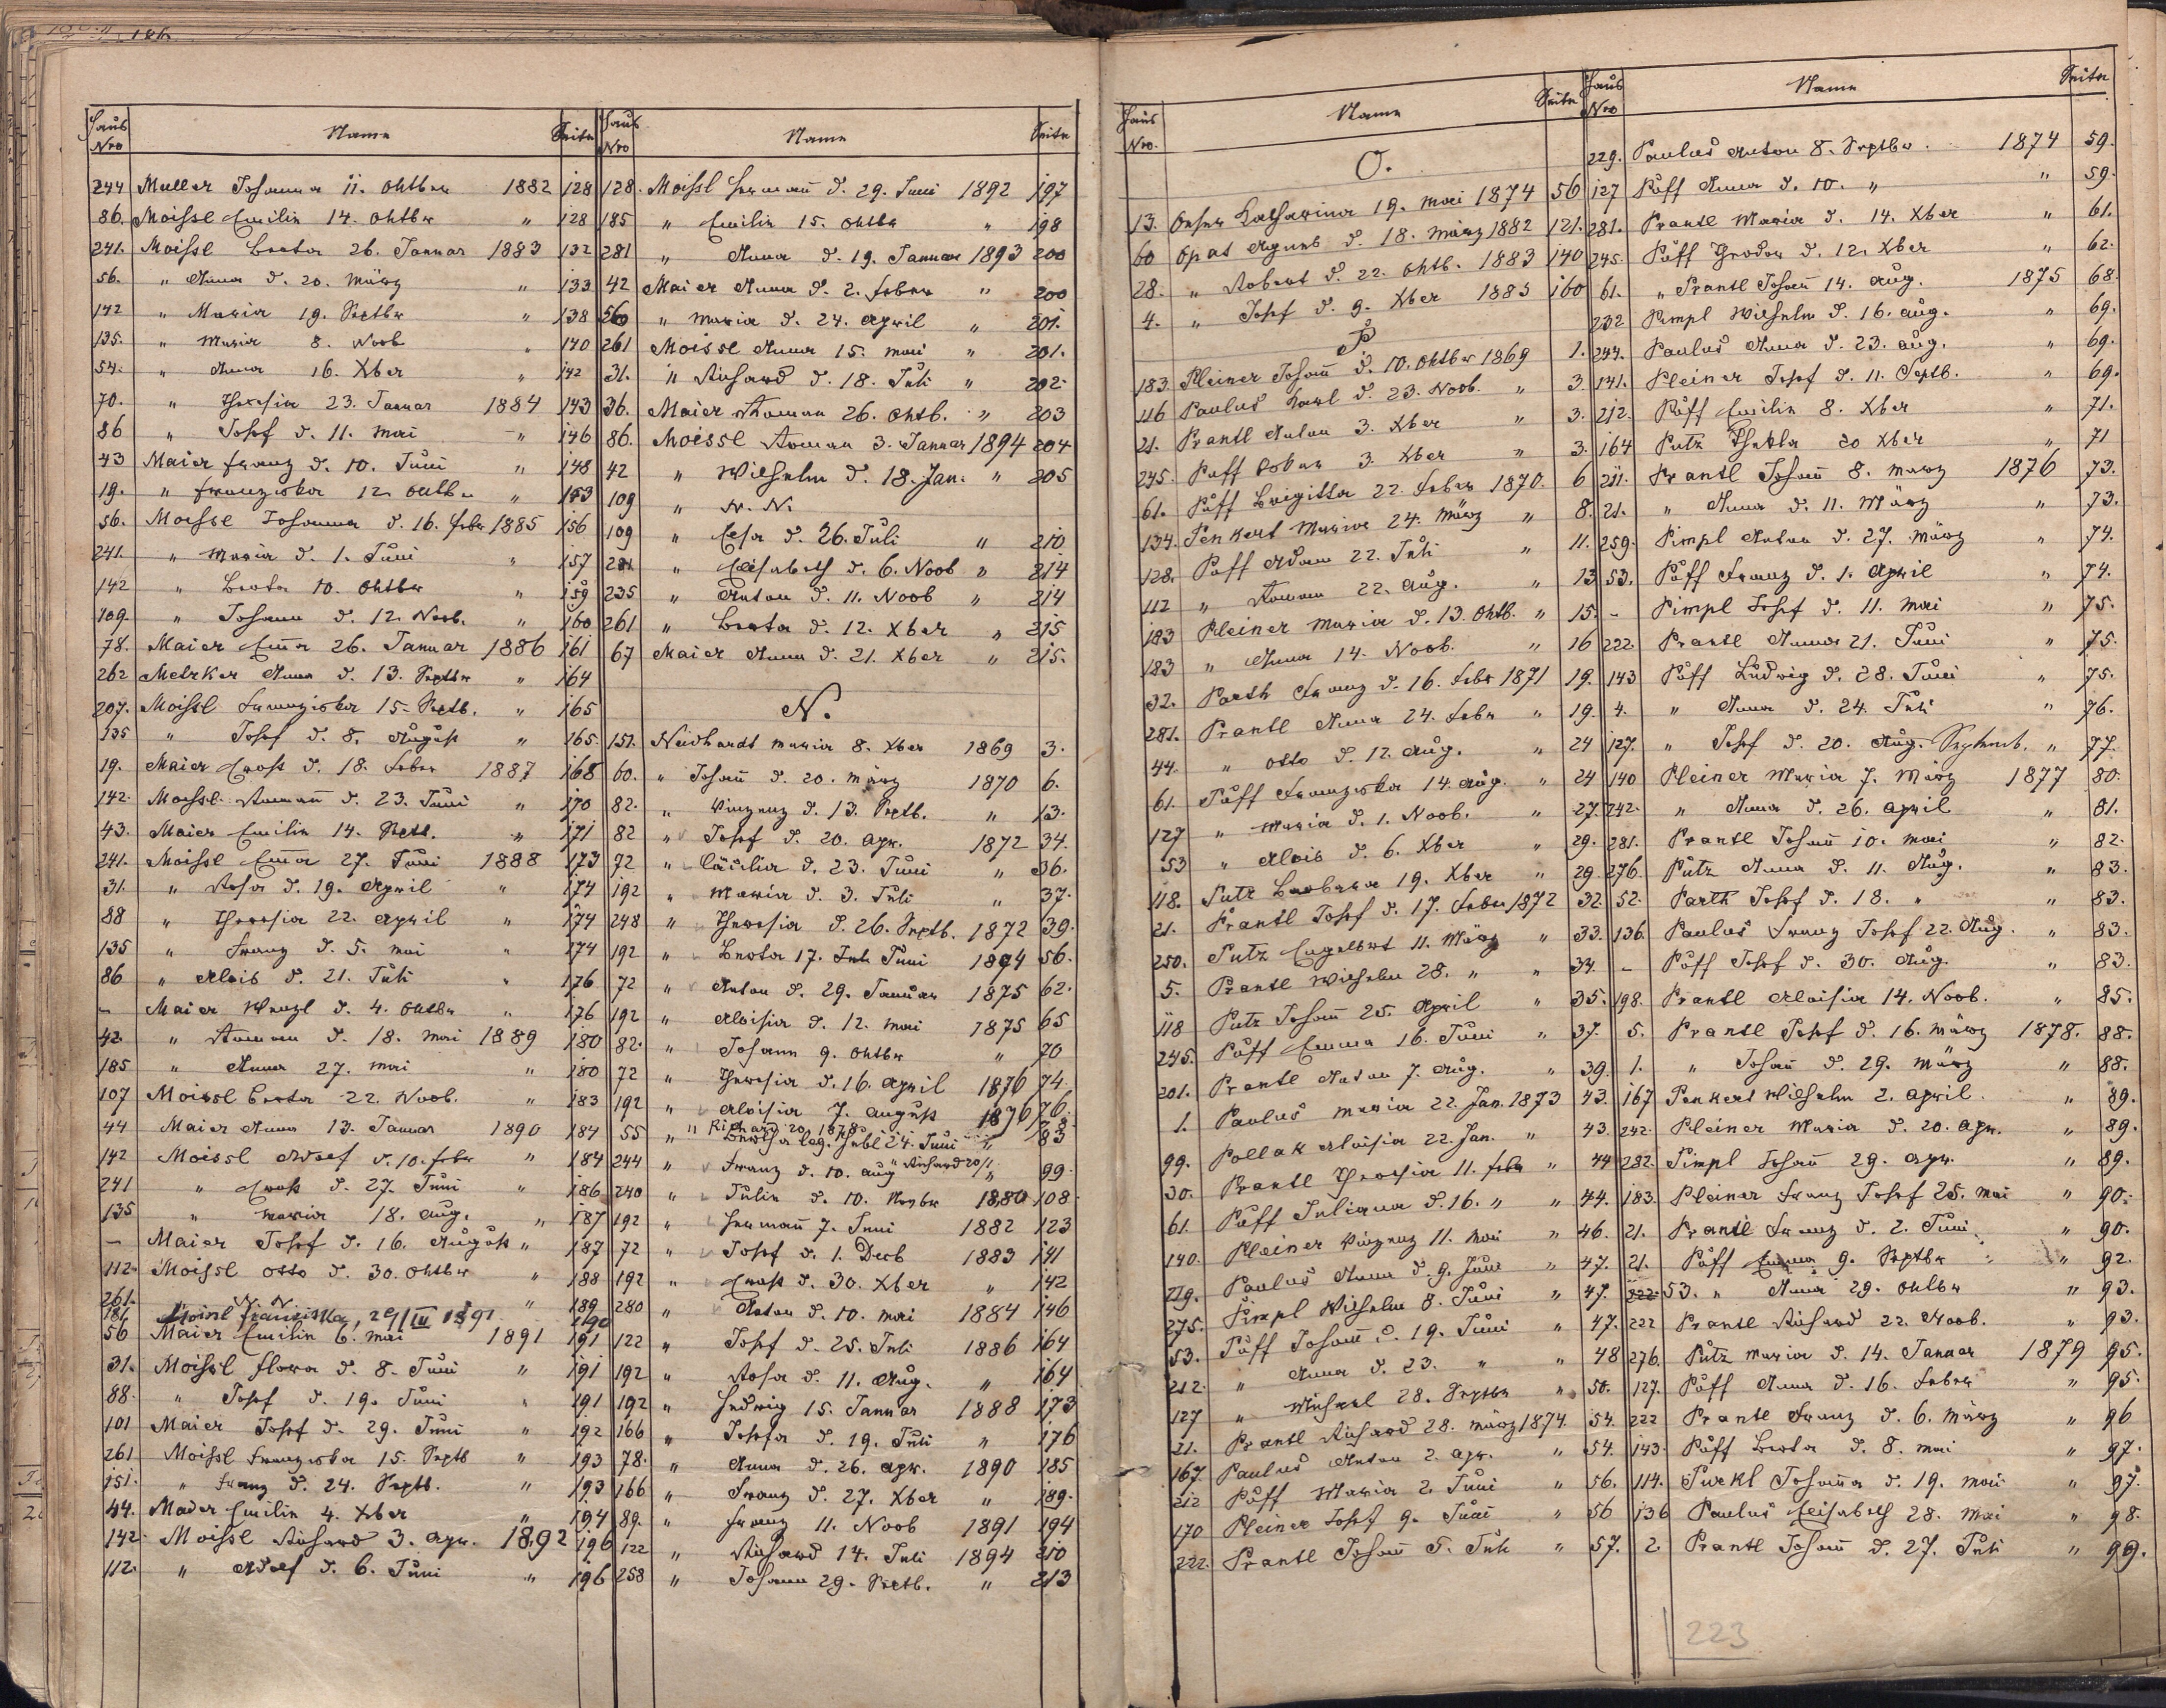 Haus Nro Name Seite
244 Muller Johanna 11. Oktber 1882 128
86. Moissl Emilie 14. Oktbr " 128
241. Moissl Berta 26. Januar 1883 132
56. " Anna d. 20. März " 133
142 " Maria 19. Septbr " 138
135. " Maria 8. Novb " 140
54. " Anna 16. Xber " 142
70. " Theresia 23. Januar 1884 143
86 " Josef d. 11. Mai " 146
43 Maier Franz d. 10. Juni " 148
19. " Franziska 12. Oktbr " 153
56. Moissl Johanna d. 16. Febr 1885 156
241. " Maria d. 1. Juni " 157
142 " Berta 10. Oktbr " 159
109. " Johann d. 12. Novb. " 160
78. Maier Ema 26. Januar 1886 161
262 Metzker Anna d. 13. Septbr " 164
207. Moissl Franziska 15. Septb. " 165
135 " Josef d. 8. August " 165
19. Maier Ernst d. 18. Feber 1887 168
142. Moissl Roman d. 23. Juni " 170
43. Maier Emilie 14. Septb. " 171
241. Moissl Ema 27. Juni 1888 173
31. " Rosa d. 19. April " 174
88 " Theresia 22. April " 174
135 " Franz d. 5. Mai " 174
86 " Alois d. 21. Juli " 176
– Maier Wenzl d. 4. Oktbr " 176
42. " Roman d. 18. Mai 1889 180
185 " Anna 27. Mai " 180
107 Moissl Berta 22. Novb. " 183
44 Maier Anna 13. Januar 1890 184
142 Moissl Adolf d. 10. Febr " 184
241 " Ernst d. 27. Juni " 186
135 " Maria 18. Aug. " 187
– Maier Josef d. 16. August " 187
112. Moissl Otto d. 30. Oktbr " 188
261. " N. N. " 189
181 Moissl Franziska, 29/III 1891 190
56 Maier Emilie 6. Mai 1891 191
31. Moissl Flora d. 8. Juni " 191
88. " Josef d. 19. Juni " 191
101 Maier Josef d. 29. Juni " 192
261 Moissl Franziska 15. Septb " 193
151. " Franz d. 24. Septb. " 193
44. Mader Emilie 4. Xber " 194
142. Moissl Richard 3. Apr. 1892 196
112. " Adolf d. 6. Juni " 196
Haus Nro Name Seite
128. Moissl Hermann d. 29. Juni 1892 197
185 " Emilie 15. Oktbr " 198
281 " Anna d. 19. Januar 1893 200
42 Maier Anna d. 2. Feber " 200
56 " Maria d. 24. April " 201.
261 Moissl Anna 15. Mai " 201.
31. " Richard d. 18. Juli " 202.
36. Maier Roman 26. Oktb. " 203
86. Moissl Roman 3. Januar 1894 204
42 " Wilhelm d. 18. Jan. " 205
109 " N. N.
109 " Elsa d. 26. Juli " 210
281. " Elisabeth d. 6. Novb " 214
235 " Anton d. 11. Novb " 214
261 " Berta d. 12. Xber " 215
67 Maier Anna d. 21. Xber " 215.
N.
151. Neidhardt Maria 8. Xber 1869 3.
60. " Johann d. 20. März 1870 6.
82. " Vinzenz d. 13. Septb. " 13.
82 " Josef d. 20. Apr. 1872 34.
72 " Cäcilia d. 23. Juni " 36.
192 " Maria d. 3. Juli " 37.
248 " Theresia d. 26. Septb. 1872 39.
192 " Berta 17. Juni 1874 56.
72 " Anton d. 29. Januar 1875 62.
192 " Aloisia d. 12. Mai 1875 65
82. " Johann 9. Oktbr " 70
72 " Theresia d. 16. April 1876 74.
192 " Aloisia 7. August 1876 76.
" Richard 20. 1878
55 " 24. Juni " 83
244 " Franz d. 10. Aug " Richard 20/1 99.
240 " Julie d. 10. 1880 108.
192 " Hermann 7. Juni 1882 123
72 " Josef d. 1. Decb 1883 141
192 " Ernst d. 30. Xber " 142
280 " Anton d. 10. Mai 1884 146
122 " Josef d. 25. Juli 1886 164
192 " Rosa d. 11. Aug. " 164
192 " Hedwig 15. Januar 1888 173
166 " Josefa d. 19. Juli " 176
78. " Anna d. 26. Apr. 1890 185
166 " Franz d. 27. Xber " 189.
89. " Franz 11. Novb 1891 194
122 " Richard 14. Juli 1894 210
258 " Johann 29. Septb. " 213
Haus Nro. Name Seite
O.
13. Katharina 19. Mai 1874 56
60 Opat Agnes d. 18. März 1882 121.
28. " Robert d. 22. Oktb. 1883 140
4. " Josef d. 9. Xber 1885 160
P
183. Pleiner Johann d. 10. Oktbr 1869 1.
116 Paulus Karl d. 23. Novb. " 3.
21. Prantl Anton 3. Xber " 3.
245. Püff Oskar 3. Xber " 3.
61. Püff Brigitta 22. Feber 1870. 6
134. Penkert Maria 24. März " 8.
128. Püff Adam 22. Juli " 11.
112 " Roman 22. Aug. " 13
183 Pleiner Maria d. 13. Oktb. " 15.
183 " Anna 14. Novb. " 16
32. Parth Franz d. 16. Febr 1871 19.
281. Prantl Anna 24. Febr " 19.
44. " Otto d. 12. Aug. " 24
61. Püff Franziska 14. Aug. " 24
127 " Maria d. 1. Novb. " 27.
53 " Alois d. 6. Xber " 29.
118. Putz Barbara 19. Xber " 29.
21. Prantl Josef d. 17. Feber 1872 32.
250. Putz Engelbert 11. März " 33.
5. Prantl Wilhelm 28. " " 34.
118 Putz Johann 25. April " 35.
245. Püff Emma 16. Juni " 37.
201. Prantl Anton 7. Aug. " 39.
1. Paulus Maria 22. Jan. 1873 43.
99. Pollak Aloisia 22. Jan. " 43.
30. Prantl Theresia 11. Febr " 44
61. Püff Juliana d. 16. " " 44.
140. Pleiner Vinzenz 11. Mai " 46.
219. Paulus Anna d. 9. Juni " 47.
275. Pimpl Wilhelm 8. Juni " 47.
53. Püff Johann d. 19. Juni " 47.
212. " Anna d. 23. " " 48
127 " Michael 28. Septbr " 50.
21. Prantl Richard 28. März 1874. 54.
167. Paulus Anton 2. Apr. " 54.
212 Püff Maria 2. Juni " 56.
170 Pleiner Josef 9. Juni " 56
222. Prantl Johann 5. Juli " 57.
Haus Nro Name Seite
229. Paulus Anton 8. Septbr. 1874 59.
127 Püff Anna d. 10. " " 59.
281. Prantl Maria d. 14. Xber " 61.
245. Püff Theodor d. 12. Xber " 62.
61. " Prantl Johann 14. Aug. 1875 68.
232 Pimpl Wilhelm d. 16. Aug. " 69.
244. Paulus Anna d. 23. Aug. " 69.
141. Pleiner Josef d. 11. Septb. " 69.
212. Püff Emilie 8. Xber " 71.
164 Putz Thekla 20 Xber " 71
211. Prantl Johann 8. März 1876 73.
21. " Anna d. 11. März " 73.
259. Pimpl Anton d. 27. März " 74.
53. Püff Franz d. 1. April " 74.
– Pimpl Josef d. 11. Mai " 75.
222. Prantl Anna 21. Juni " 75.
143 Püff Ludwig d. 28. Juni " 75.
4. " Anna d. 24. Juli " 76.
127. " Josef d. 20. Aug. Septemb. " 77.
140 Pleiner Maria 7. März 1877 80.
242. " Anna d. 26. April " 81.
281. Prantl Johann 10. Mai " 82.
276. Putz Anna d. 11. Aug. " 83.
52. Parth Josef d. 18. " " 83.
136. Paulus Franz Josef 22. Aug. " 83.
– Püff Josef d. 30. Aug. " 83.
198. Prantl Aloisia 14. Novb. " 85.
5. Prantl Josef d. 16. März 1878. 88.
1. " Johann d. 29. März " 88.
167 Penkert Wilhelm 2. April. " 89.
242. Pleiner Maria d. 20. Apr. " 89.
282. Pimpl Johann 29. Apr. " 89.
183. Pleiner Franz Josef 25. Mai " 90.
21. Prantl Franz d. 2. Juni " 90.
21. Püff Emma 9. Septbr " 92.
53. " Anna 29. Oktbr " 93.
222 Prantl Richard 22. Novb. " 93.
276. Putz Maria d. 14. Januar 1879 95.
127. Püff Anna d. 16. Feber " 95.
222 Prantl Franz d. 6. März " 96
143. Püff Berta d. 8. Mai " 97.
114. Purkl Johanna d. 19. Mai " 97.
136 Paulus Elisabeth 28. Mai " 98.
2. Prantl Johann d. 27. Juli " 99.
223